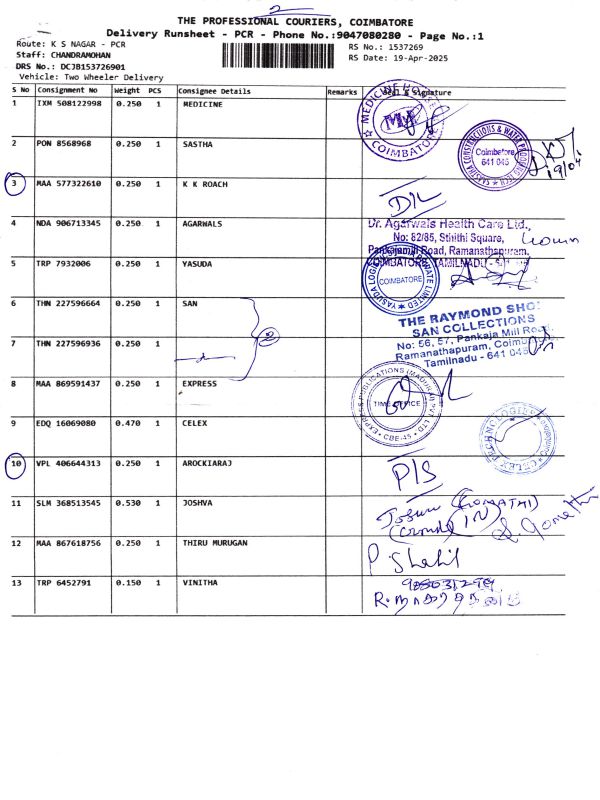 2
THE PROFESSIONAL COURIERS, COIMBATORE
Delivery Runsheet - PCR - Phone No.:9047080280 - Page No.:1
Route: K S NAGAR - PCR
RS No.: 1537269
Staff: CHANDRAMOHAN
RS Date: 19-Apr-2025
DRS No.: DCJB153726901
Vehicle: Two Wheeler Delivery
S No Consignment No Weight PCS Consignee Details Remarks Seal & Signature
1 IXM 508122998 0.250 1 MEDICINE
COIMBATORE
2 PON 8568968 0.250 1 SASTHA
Coimbatore
641 045
19/04
3 MAA 577322610 0.250 1 K K ROACH
D/L
4 NDA 906713345 0.250 1 AGARWALS
Dr. Agarwals Health Care Ltd.,
No: 82/85, Stirithi Square,
Pankajamill Road, Ramanathapuram.
COIMBATORE TAMILNADU
5 TRP 7932006 0.250 1 YASUDA
COIMBATORE
6 THN 227596664 0.250 1 SAN
THE RAYMOND SHO
SAN COLLECTIONS
No: 56, 57, Pankaja Mill Road,
Ramanathapuram, Coimbatore
Tamilnadu - 641 045
7 THN 227596936 0.250 1
8 MAA 869591437 0.250 1 EXPRESS
EXPRESS PUBLICATIONS (MADURAI) PVT LTD
TIME OFFICE
CBE-45
9 EDQ 16069080 0.470 1 CELEX
CELEX TECHNOLOGIES
10 VPL 406644313 0.250 1 AROCKIARAJ
P/S
11 SLM 368513545 0.530 1 JOSHVA
(GOMATHI)
12 MAA 867618756 0.250 1 THIRU MURUGAN
P
13 TRP 6452791 0.150 1 VINITHA